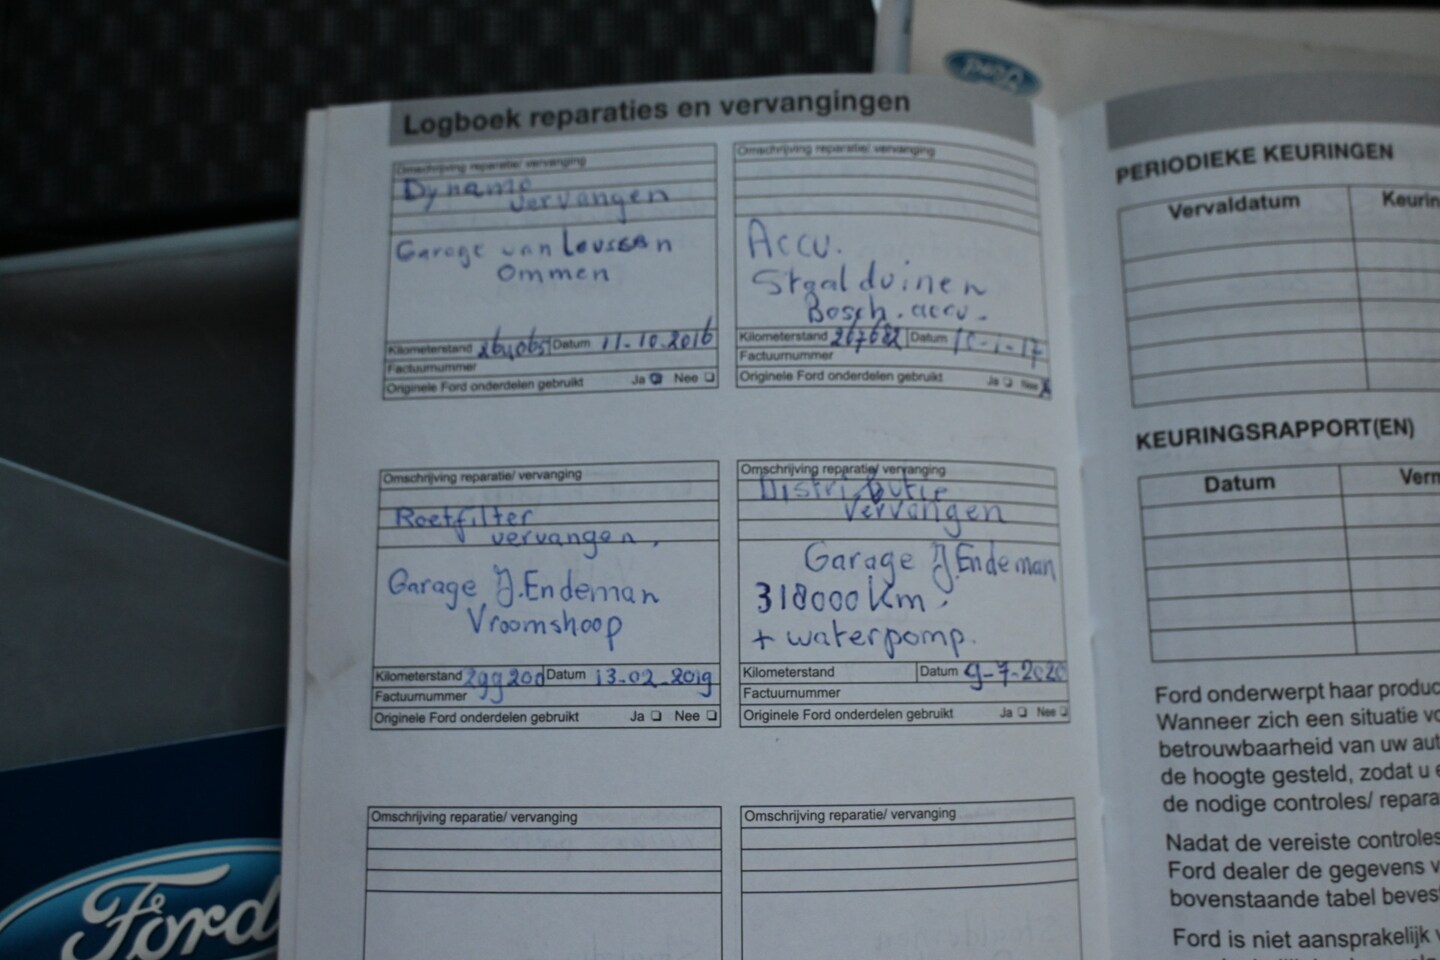 Ford
Logboek reparaties en vervangingen
Omschrijving reparatie/ vervanging
Dynamo
vervangen
Garage van Leussen
Ommen
Kilometerstand 264065 Datum 11-10.2016
Factuurnummer
Originele Ford onderdelen gebruikt Ja Nee
Omschrijving reparatie/ vervanging
Accu.
Staalduinen
Bosch. accu.
Kilometerstand 267682 Datum
Factuurnummer
Originele Ford onderdelen gebruikt Ja Nee
Omschrijving reparatie/ vervanging
Roetfilter
vervangen.
Garage J.Endeman
Vroomshoop
Kilometerstand 299200 Datum 13-02-2019
Factuurnummer
Originele Ford onderdelen gebruikt Ja Nee
Omschrijving reparatie/ vervanging
Distributie
vervangen
Garage J.Endeman
318000 Km.
+ waterpomp.
Kilometerstand Datum 9-7-2020
Factuurnummer
Originele Ford onderdelen gebruikt Ja Nee
Omschrijving reparatie/ vervanging
Omschrijving reparatie/ vervanging
PERIODIEKE KEURINGEN
Vervaldatum Keurin
KEURINGSRAPPORT(EN)
Datum Verm
Ford onderwerpt haar produc
Wanneer zich een situatie vo
betrouwbaarheid van uw aut
de hoogte gesteld, zodat u e
de nodige controles/ repara
Nadat de vereiste controles
Ford dealer de gegevens v
bovenstaande tabel bevest
Ford is niet aansprakelijk v
Ford